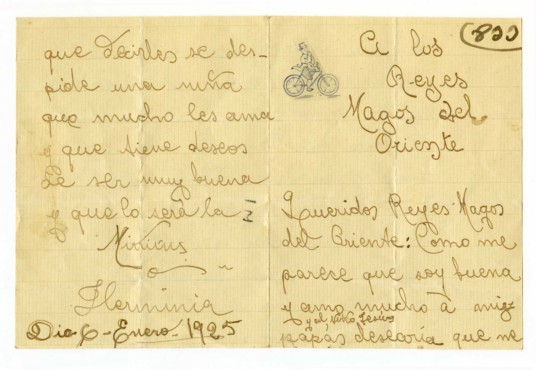 (822)
A los
Reyes
Magos del
Oriente
Queridos Reyes Magos
del Oriente: Como me
parece que soy buena
y amo mucho á mis
y el Niño Jesús
papás desearía que me
que decirles se des-
pide una niña
que mucho les ama
y que tiene deseos
de ser muy buena
y que lo será la
Herminia
Dia 6- Enero- 1925